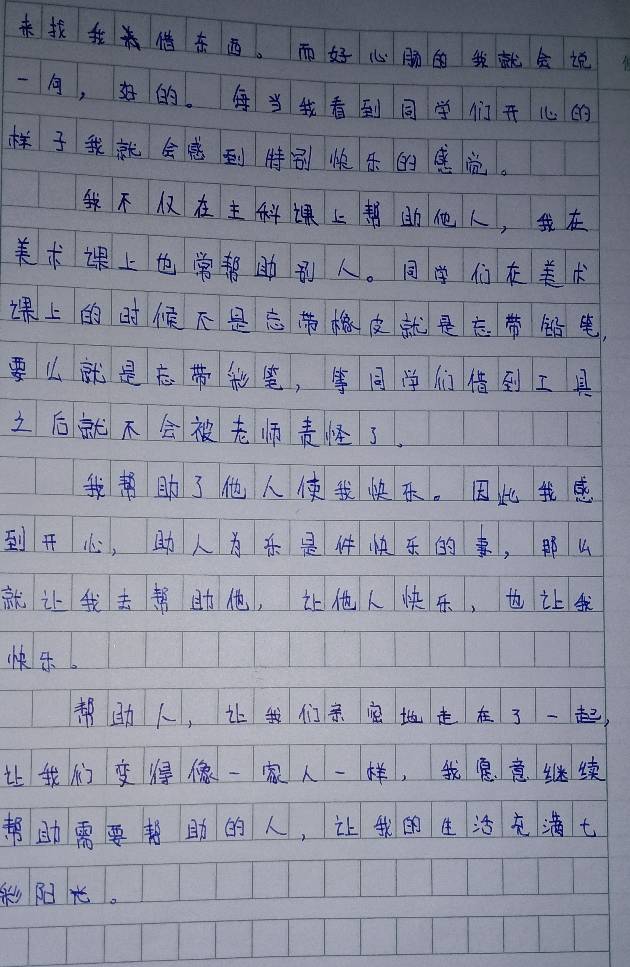 来找我借东西。而好心肠的我就会说
一句，好的。每当我看到同学们开心的
样子我就会感到特别快乐的感觉。
我不仅在主科课上帮助他人，我在
美术课上也常帮助别人。同学们在美术
课上的时候不是忘带橡皮就是忘带铅笔，
要么就是忘带彩笔，等同学们借到工具
之后就不会被老师责怪了。
我帮助了他人使我快乐。因此我感
到开心，助人为乐是件快乐的事，那么
就让我去帮助他，让他人快乐，也让我
快乐。
帮助人，让我们亲密地走在了一起，
让我们变得像一家人一样，我愿意继续
帮助需要帮助的人，让我的生活充满七
彩阳光。